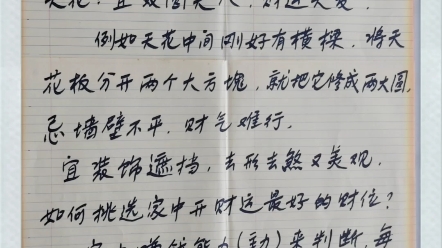 例如天花中间刚好有横樑，将天
花板分开两个大方塊，就把它修成两大圆，
忌墙壁不平，财气难行。
宜装饰遮挡，去形去煞又美观。
如何挑选家中开财运最好的财位？
来判断，每